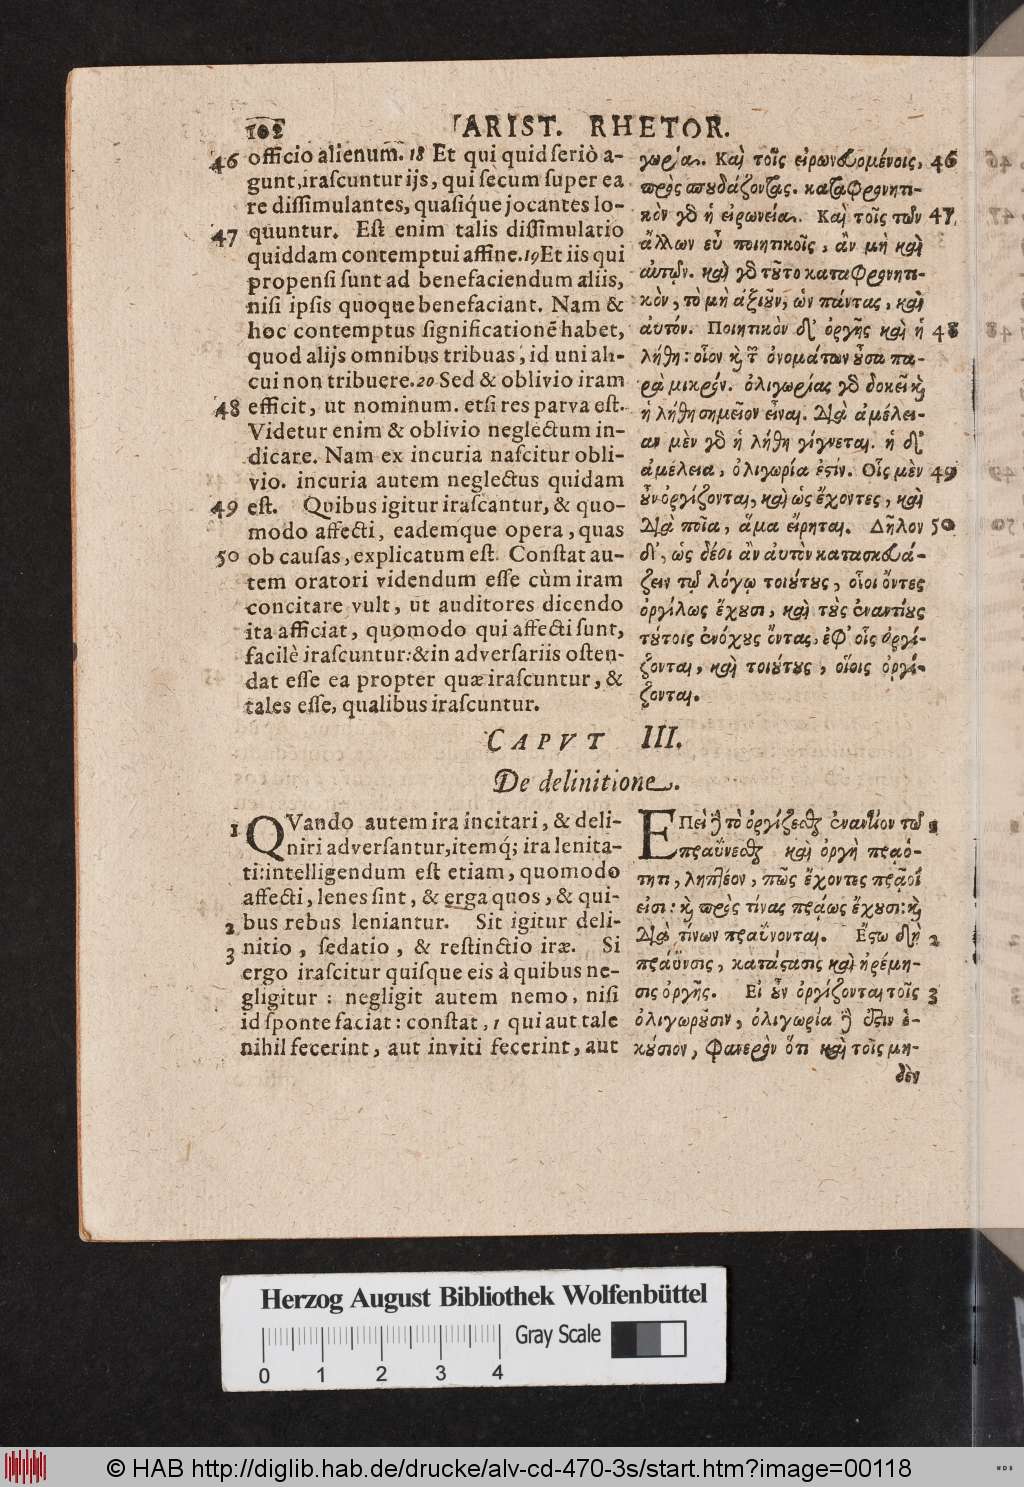 102 ARIST. RHETOR.
46 officio alienum. 18 Et qui quid seriò a-
gunt, irascuntur ijs, qui secum super ea
re dissimulantes, quasique jocantes lo-
47 quuntur. Est enim talis dissimulatio
quiddam contemptui affine. 19 Et iis qui
propensi sunt ad benefaciendum aliis,
nisi ipsis quoque benefaciant. Nam &
hoc contemptus significationē habet,
quod alijs omnibus tribuas, id uni ali-
cui non tribuere. 20 Sed & oblivio iram
48 efficit, ut nominum. etsi res parva est.
Videtur enim & oblivio neglectum in-
dicare. Nam ex incuria nascitur obli-
vio. incuria autem neglectus quidam
49 est. Quibus igitur irascantur, & quo-
modo affecti, eademque opera, quas
50 ob causas, explicatum est. Constat au-
tem oratori videndum esse cùm iram
concitare vult, ut auditores dicendo
ita afficiat, quomodo qui affecti sunt,
facilè irascuntur: & in adversariis osten-
dat esse ea propter quæ irascuntur, &
tales esse, qualibus irascuntur.
γωρία. Καὶ τοῖς εἰρωνευομένοις, 46
πρὸς σπουδάζοντας. καταφρονητι-
κὸν γὸ ἡ εἰρωνεία. Καὶ τοῖς τῶν 47
ἄλλων εὖ ποιητικοῖς, ἂν μὴ καὶ
αὐτῶν. καὶ γὸ τοῦτο καταφρονητι-
κὸν, τὸ μὴ ἀξιοῦν, ὧν πάντας, καὶ
αὐτόν. Ποιητικὸν δ' ὀργῆς καὶ ἡ 48
λήθη: οἷον κὶ τ ὀνομάτων οὖσα πα-
ρὰ μικρόν. ὀλιγωρίας γὸ δοκεῖ κὶ
ἡ λήθη σημεῖον εἶναι. Διὰ ἀμέλει-
αν μὲν γὸ ἡ λήθη γίγνεται. ἡ δ'
ἀμέλεια, ὀλιγωρία ἐστίν. Οἷς μὲν 49
οὖν ὀργίζονται, καὶ ὡς ἔχοντες, καὶ
Διὰ ποῖα, ἅμα εἴρηται. Δῆλον 50
δ', ὡς δέοι ἂν αὐτὸν κατασκευά-
ζειν τῷ λόγῳ τοιούτους, οἷοι ὄντες
ὀργίλως ἔχουσι, καὶ τοὺς ἐναντίους
τούτοις ἐνόχους ὄντας, ἐφ' οἷς ὀργί-
ζονται, καὶ τοιούτους, οἵοις ὀργί-
ζονται.
CAPVT III.
De delinitione.
1 QVando autem ira incitari, & deli-
niri adversantur, itemq; ira lenita-
ti: intelligendum est etiam, quomodo
affecti, lenes sint, & erga quos, & qui-
2 bus rebus leniantur. Sit igitur deli-
3 nitio, sedatio, & restinctio iræ. Si
ergo irascitur quisque eis à quibus ne-
gligitur: negligit autem nemo, nisi
id sponte faciat: constat, 1 qui aut tale
nihil fecerint, aut inviti fecerint, aut
ΕΠεὶ ἢ τὸ ὀργίζεσθαι ἐναντίον τῷ 1
πραΰνεσθαι καὶ ὀργὴ πραό-
τητι, ληπτέον, πῶς ἔχοντες πρᾷοί
εἰσι: κὶ πρὸς τίνας πράως ἔχουσι: κὶ
Διὰ τίνων πραΰνονται. Ἔστω δὴ 2
πράϋνσις, κατάστασις καὶ ἠρέμη-
σις ὀργῆς. Εἰ οὖν ὀργίζονται τοῖς 3
ὀλιγωροῦσιν, ὀλιγωρία ἢ ἐστιν ἑ-
κούσιον, φανερὸν ὅτι καὶ τοῖς μη-
δὲν
Herzog August Bibliothek Wolfenbüttel
Gray Scale
0 1 2 3 4
© HAB http://diglib.hab.de/drucke/alv-cd-470-3s/start.htm?image=00118